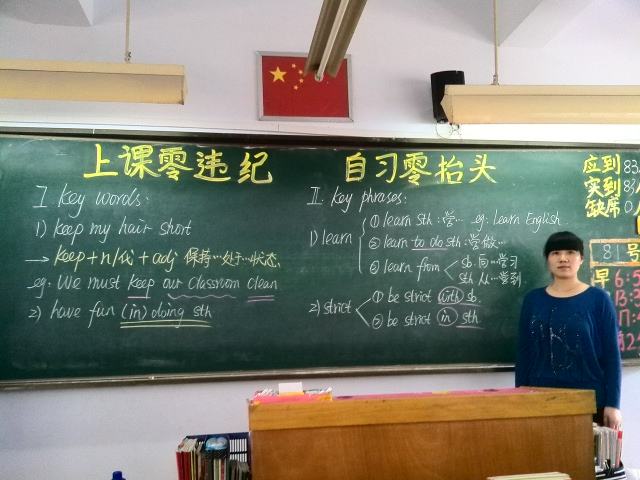 上课零违纪
自习零抬头
I. Key words:
1) keep my hair short
→ keep+n/代+adj 保持…处于…状态.
eg: We must keep our classroom clean
2) have fun (in) doing sth
II. Key phrases:
1) learn
① learn sth: 学… eg: learn English.
② learn to do sth: 学做…
③ learn from
sb 向…学习
sth 从…学到
2) strict
① be strict with sb.
② be strict in sth.
应到 83
实到 83
缺席 0
81号
早